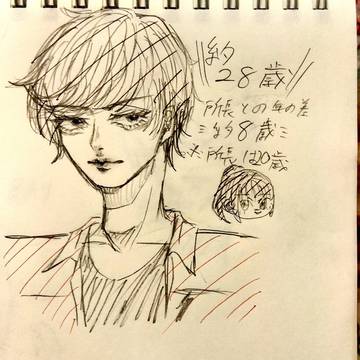 \\約
28歳//
所長との年の差
ミ約8歳ミ
※所長は20歳